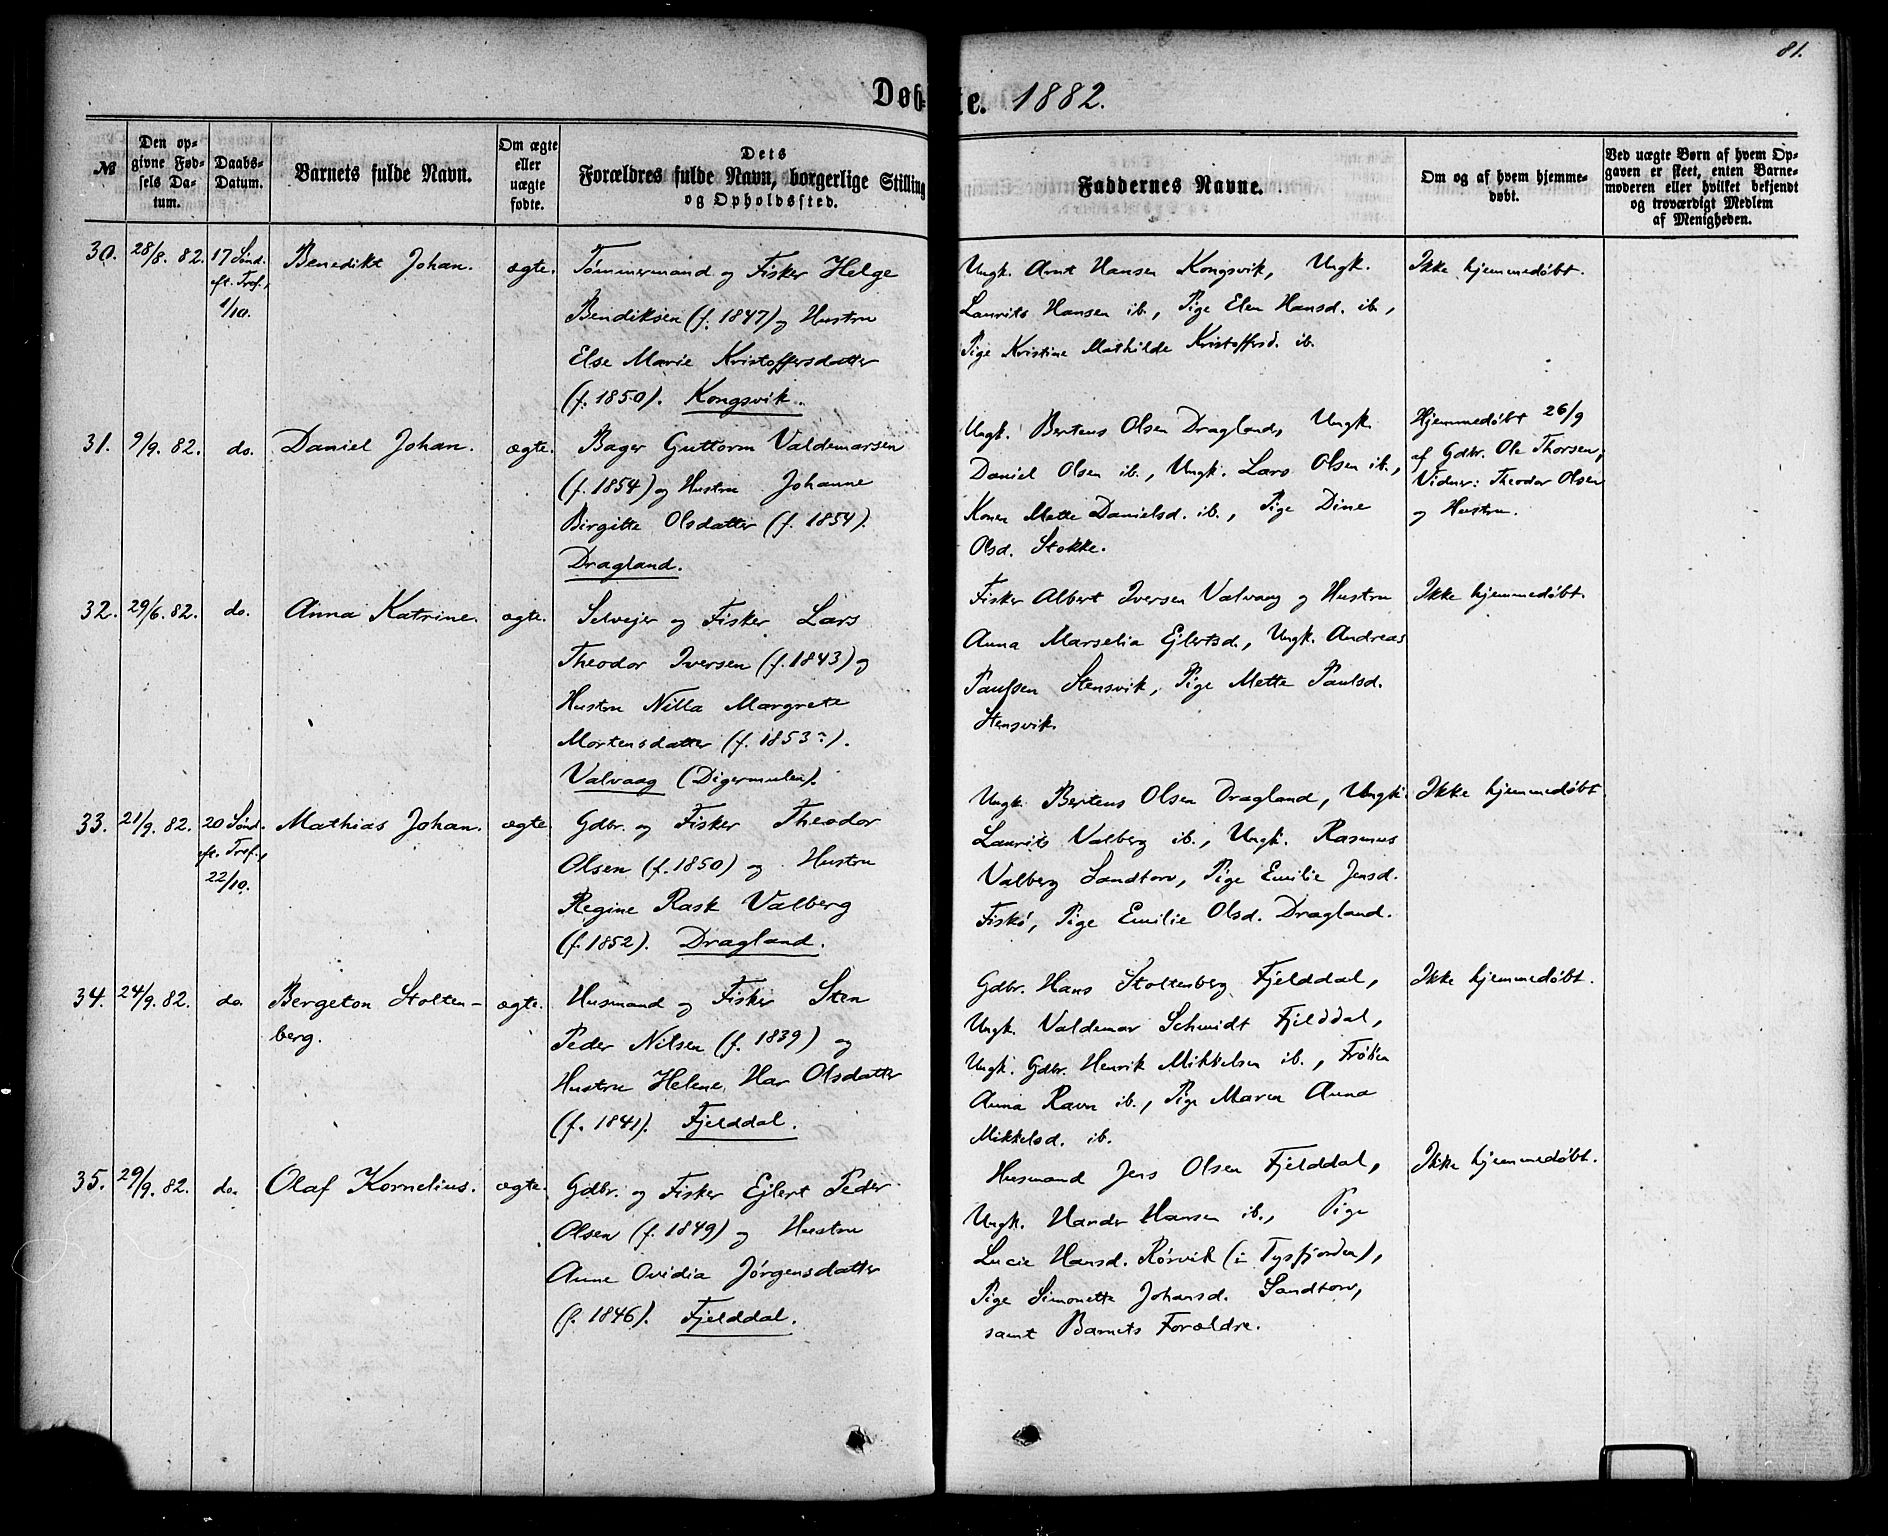 81.
Døbte. 1882.
№
Den op-
givne Fød-
sels Da-
tum.
Daabs-
Datum.
Barnets fulde Navn.
Om ægte
eller
uægte
fødte.
Dets
Forældres fulde Navn, borgerlige Stilling
og Opholdssted.
Faddernes Navne.
Om og af hvem hjemme-
døbt.
Ved uægte Børn af hvem Op-
gaven er skeet, enten Barne-
moderen eller hvilket bekjendt
og troværdigt Medlem
af Menigheden.
30. 28/8. 82. 17 Sønd.
eft. Tref.,
1/10.
Benedikt Johan.
ægte.
Tømmermand og Fisker Helge
Bendiksen (f. 1847) og Hustru
Else Marie Kristoffersdatter
(f. 1850). Kongsvik.
Ungk. Arnt Hansen Kongsvik, Ungk.
Laurits Hansen ib., Pige Elen Hansd. ib.,
Pige Kristine Mathilde Kristoffersd. ib.
Ikke hjemmedøbt.
31. 9/9. 82. do.
Daniel Johan.
ægte.
Bager Guttorm Valdemarsen
(f. 1854) og Hustru Johanne
Birgitte Olsdatter (f. 1854).
Dragland.
Ungk. Bertens Olsen Dragland, Ungk.
Daniel Olsen ib., Ungk. Lars Olsen ib.,
Konen Mette Danielsd. ib., Pige Dine
Olsd. Stokke.
Hjemmedøbt 26/9
af Gdbr. Ole Thorsen;
Vidner: Theodor Olsen
og Hustru.
32. 29/6. 82. do.
Anna Katrine.
ægte.
Selvejer og Fisker Lars
Theodor Iversen (f. 1843) og
Hustru Nilla Margrete
Mortensdatter (f. 1853?).
Valvaag (Digermulen).
Fisker Albert Iversen Valvaag og Hustru
Anna Marselia Ejlertsd., Ungk. Andreas
Paulsen Stensvik, Pige Mette Paulsd.
Stensvik.
Ikke hjemmedøbt.
33. 21/9. 82. 20 Sønd.
eft. Tref.,
22/10.
Mathias Johan.
ægte.
Gdbr. og Fisker Theodor
Olsen (f. 1850) og Hustru
Regine Rask Valberg
(f. 1852). Dragland.
Ungk. Bertens Olsen Dragland, Ungk.
Laurits Valberg ib., Ungk. Rasmus
Valberg Sandtorv, Pige Emilie Jensd.
Fiskø, Pige Emilie Olsd. Dragland.
Ikke hjemmedøbt.
34. 24/9. 82. do.
Bergeton Stolten-
berg.
ægte.
Husmand og Fisker Sten
Peder Nilsen (f. 1839) og
Hustru Helene Har Olsdatter
(f. 1841). Fjelddal.
Gdbr. Hans Stoltenberg Fjelddal,
Ungk. Valdemar Schmidt Fjelddal,
Ungk. Gdbr. Henrik Mikkelsen ib., Frøken
Anna Ravn ib., Pige Maren Anna
Mikkelsd. ib.
Ikke hjemmedøbt.
35. 29/9. 82. do.
Olaf Kornelius.
ægte.
Gdbr. og Fisker Ejlert Peder
Olsen (f. 1849) og Hustru
Anne Ovidia Jørgensdatter
(f. 1846). Fjelddal.
Husmand Jens Olsen Fjelddal,
Ungk. Hansen ib., Pige
Lucie Hansd. Rørvik (i Tysfjorden),
Pige Simonette Johansd. Sandtorv,
samt Barnets Forældre.
Ikke hjemmedøbt.